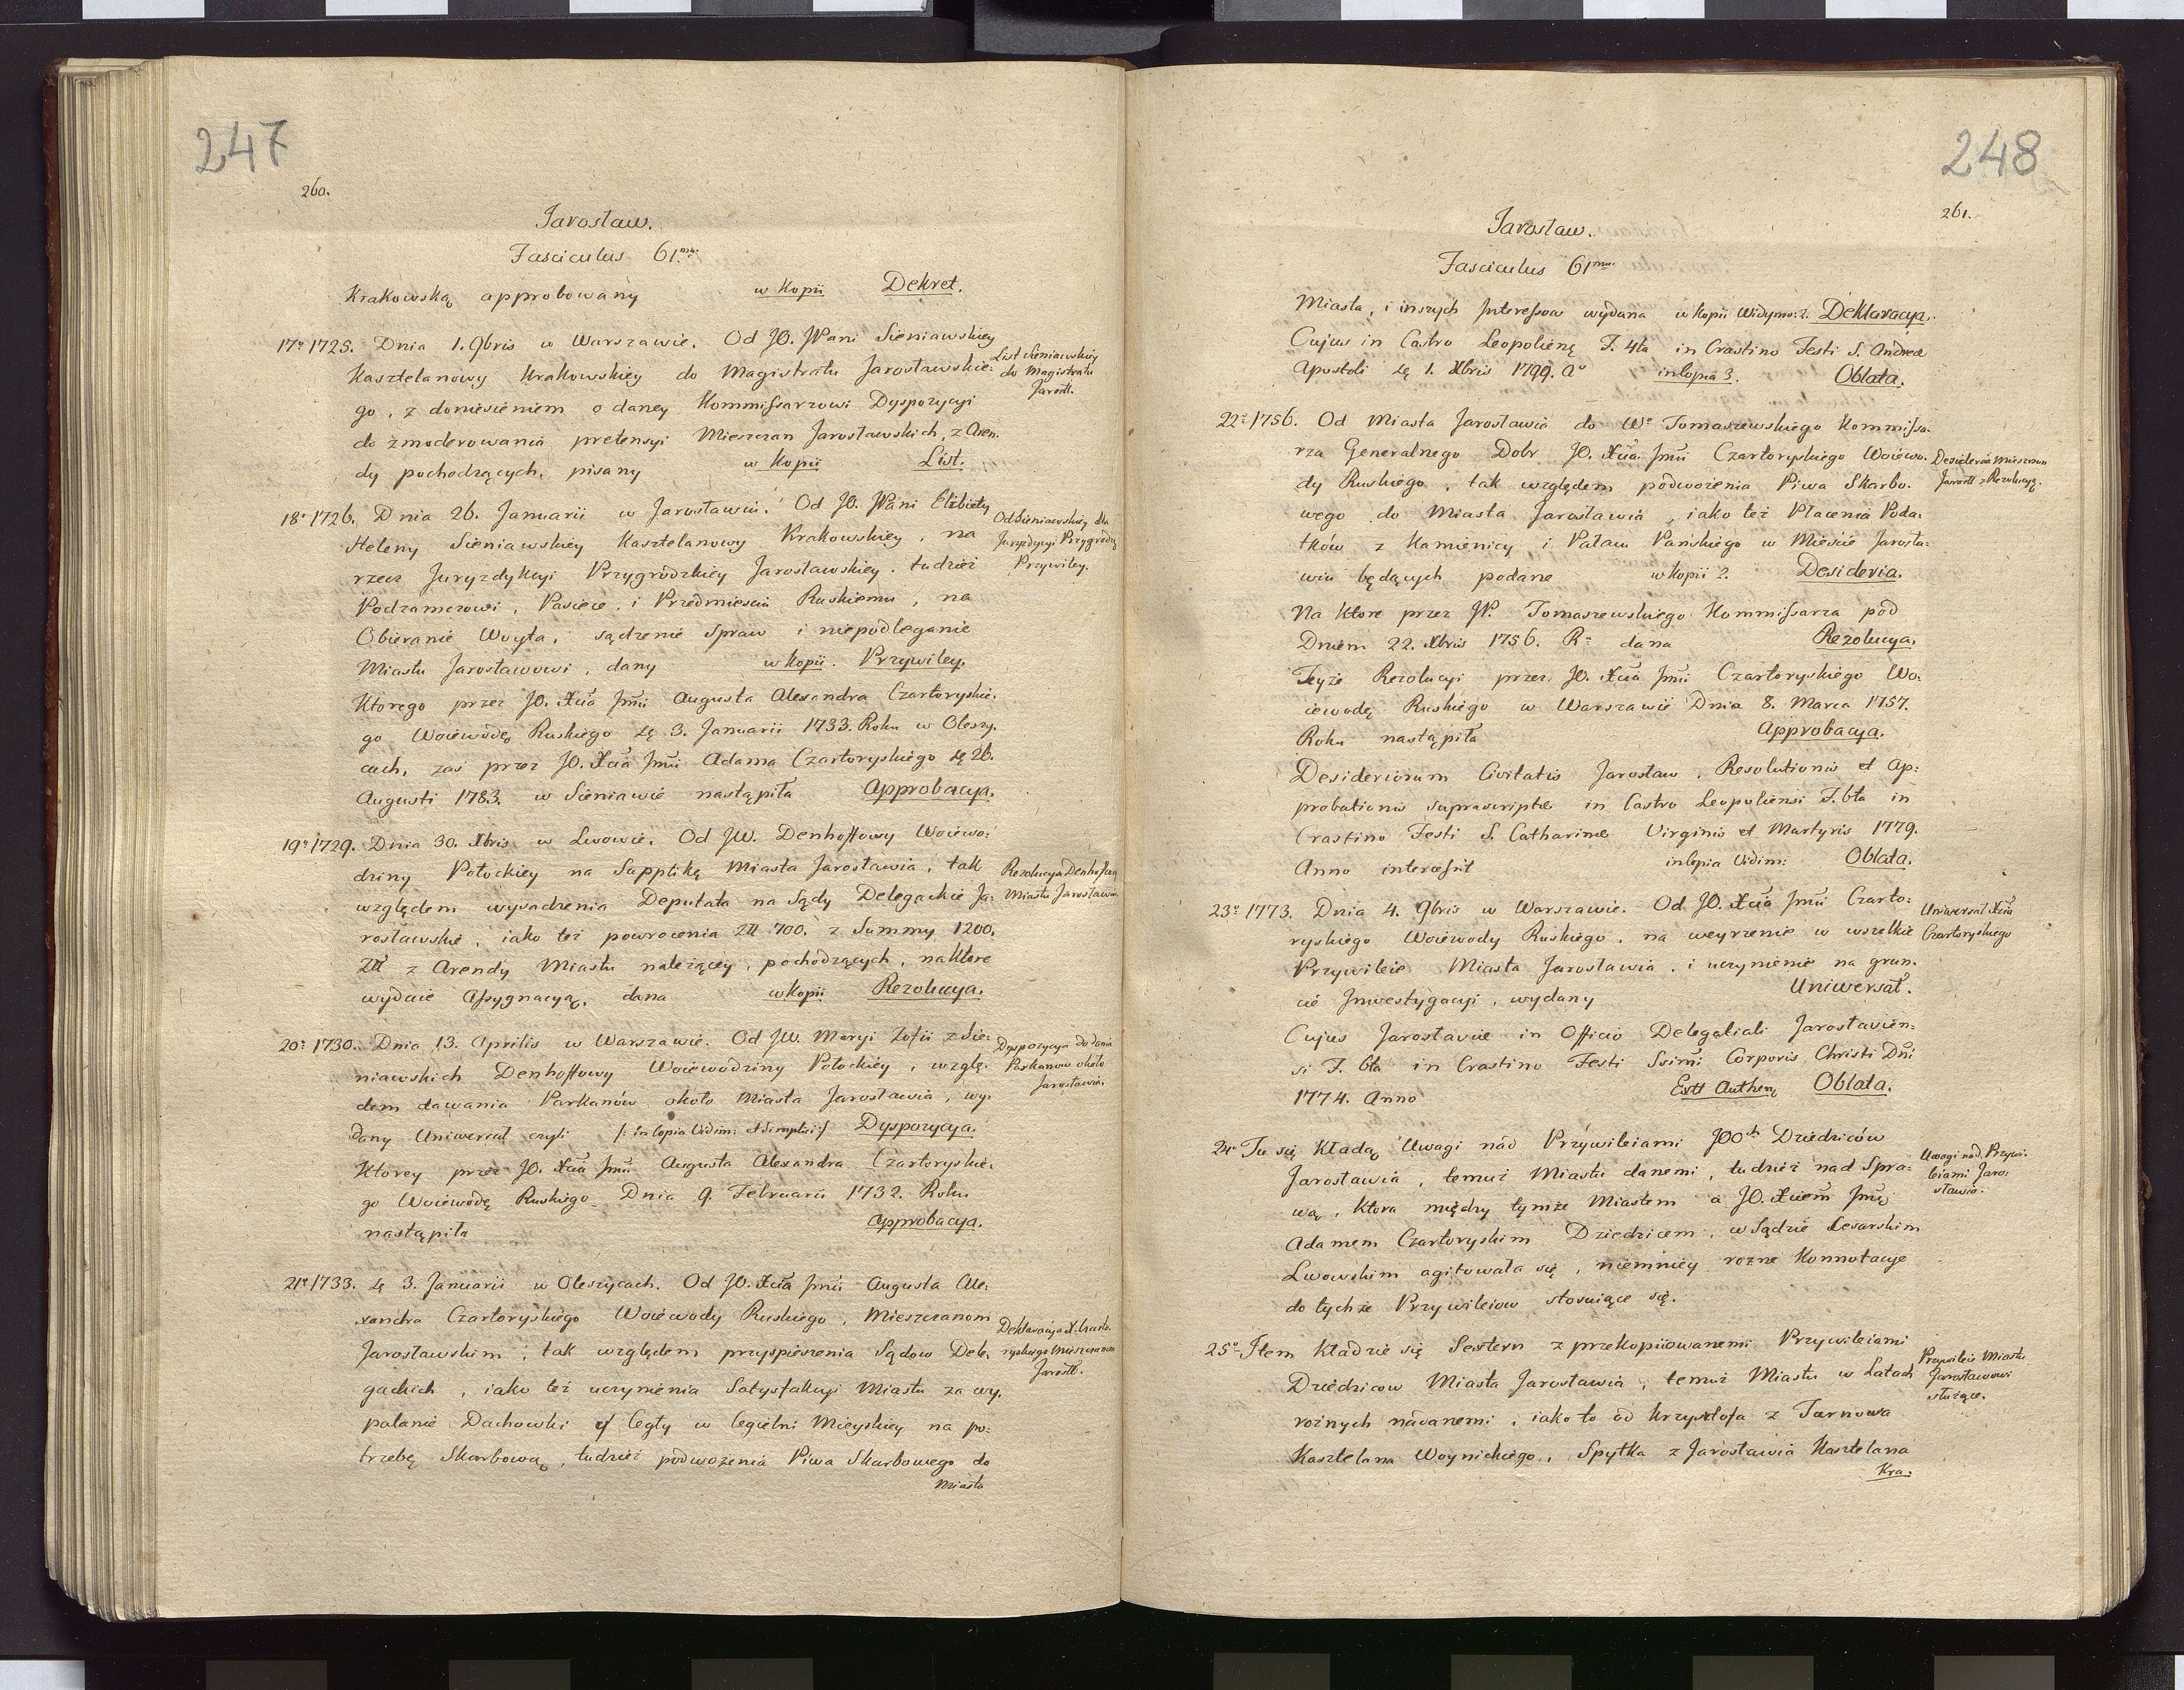 247
260.
Jarosław.
Fasciculus 61.mus
Krakowską approbowany w Kopii Dekret.
17º 1725. Dnia 1. 9bris w Warszawie. Od JO. JPani Sieniawskiey
Kasztelanowy Krakowskiey do Magistratu Jarosławskie=
go, z doniesieniem o daney Kommissarzowi Dyspozycyi
do zmoderowania pretensyi Mieszczan Jarosławskich, z Aren=
dy pochodzących, pisany w Kopii List.
List Sieniawskiey
do Magistratu
Jarosł.
18º 1726. Dnia 26. Januarii w Jarosławiu. Od JO. JPani Elżbiety
Heleny Sieniawskiey Kasztelanowy Krakowskiey, na
rzecz Juryzdykcyi Przygrodzkiey Jarosławskiey, tudzież
Podzamczowi, Pasiece, i Przedmieściu Ruskiemu, na
Obieranie Woyta, sądzenie Spraw i niepodleganie
Miastu Jarosławowi, dany w Kopii. Przywiley.
Od Sieniawskiey dla
Juryzdycyi Przygrodzy
Przywiley.
Ktorego przez JO. Xcia Jmci Augusta Alexandra Czartoryskie=
go Woiewodę Ruskiego dę 3. Januarii 1733. Roku w Oleszy=
cach, zaś przez JO. Xcia Jmci Adama Czartoryskiego dę 26.
Augusti 1783. w Sieniawie nastąpiła Approbacya.
19º 1729. Dnia 30. Xbris w Lwowie. Od JW. Denhoffowy Woiewo=
dziny Połockiey na Supplikę Miasta Jarosławia, tak
względem wysadzenia Deputata na Sądy Delegackie Ja=
rosławskie, iako też powrocenia Złł 700. z Summy 1200.
Złł z Arendy Miastu należącey, pochodzących, na ktore
wydaie Assygnacyą, dana w Kopii Rezolucya.
Rezolucya Denhofowy
Miastu Jarosławow
20º 1730. Dnia 13. Aprilis w Warszawie. Od JW. Maryi Zofii z Sie=
niawskich Denhoffowy Woiewodziny Połockiey, wzglę=
dem dawania Parkanów około Miasta Jarosławia, wy=
dany Uniwersał czyli /: in Copia Vidim: et Simplici :/ Dyspozycya.
Dyspozycya do dania
Parkanow około
Jarosławia.
Ktorey przez JO. Xcia Jmci Augusta Alexandra Czartoryskie=
go Woiewodę Ruskiego Dnia 9. Februarii 1732. Roku
nastąpiła Approbacya.
21º 1733. dę 3. Januarii w Oleszycach. Od JO. Xcia Jmci Augusta Ale=
xandra Czartoryskiego Woiewody Ruskiego, Mieszczanom
Jarosławskim, tak względem przyspieszenia Sądow Dele=
gackich, iako też uczynienia Satysfakcyi Miastu za wy=
palanie Dachowki et Cegły w Cegielni Mieyskiey na po=
trzebę Skarbową, tudzież podwożenia Piwa Skarbowego do
Miasta
Deklaracya X. Czarto=
ryskiego Mieszczanom
Jarosł.
248
261.
Jarosław.
Fasciculus 61mus
Miasta, i inszych Interessow wydana w Kopii Widymo: 2. Deklaracya.
Cujus in Castro Leopolieñ F. 4ta in Crastino Festi S. Andreæ
Apostoli dę 1. Xbris 1799. Aº in Copia 3. Oblata.
22º 1756. Od Miasta Jarosławia do Wº Tomaszewskiego Kommissa=
rza Generalnego Dobr JO. Xcia Jmci Czartoryskiego Woiewo=
dy Ruskiego, tak względem podwożenia Piwa Skarbo=
wego do Miasta Jarosławia, iako też Płacenia Poda=
tków z Kamienicy i Pałacu Pańskiego w Mieście Jarosła=
wiu będących podane w Kopii 2. Desideria.
Desideria Mieszczan
Jarosł z Rezolucyą.
Na Ktore przez JP. Tomaszewskiego Kommissarza pod
Dniem 22. Xbris 1756. Rº dana Rezolucya.
Teyże Rezolucyi przez JO. Xcia Jmci Czartoryskiego Wo=
iewodę Ruskiego w Warszawie Dnia 8. Marca 1757.
Roku nastąpiła Approbacya.
Desideriorum Civitatis Jarosław, Resolutionis et Ap=
probationis suprascriptæ in Castro Leopoliensi F. 6ta in
Crastino Festi S. Catharinæ Virginis et Martyris 1779.
Anno intercessit in Copia Vidim: Oblata.
23º 1773. Dnia 4. 9bris w Warszawie. Od JO. Xcia Jmci Czarto=
ryskiego Woiewody Ruskiego, na weyrzenie w wszelkie
Przywileie Miasta Jarosławia, i uczynienie na grun=
cie Inwestygacyi, wydany Uniwersał.
Uniwersał Xcia
Czartoryskiego
Cujus Jarosłaviæ in Officio Delegatiali Jaroslavien=
si F. 6ta in Crastino Festi Ssimi Corporis Christi Dni
1774. Anno Extt Authen Oblata.
24º Tu się Kładą Uwagi nad Przywileiami JOOch Dziedziców
Jarosławia, temuż Miastu danemi, tudzież nad Spra=
wą, ktora między tymże Miastem a JO. Xciem Jmcią
Adamem Czartoryskim Dziedzicem, w Sądzie Cesarskim
Lwowskim agitowała się, niemniey rożne Konnotacye
do tychże Przywileiow stosuiące się.
Uwagi nad Przywi=
leiami Jaro=
sławia.
25º Item Kładzie się Sextern z przekopiiowanemi Przywileiami
Dziedzicow Miasta Jarosławia, temuż Miastu w Latach
rożnych nadanemi, iako to od Krzysztofa z Tarnowa
Kasztelana Woynickiego, Spytka z Jarosławia Kasztelana
Kra=
Przywileie Miastu
Jarosławowi
służące.